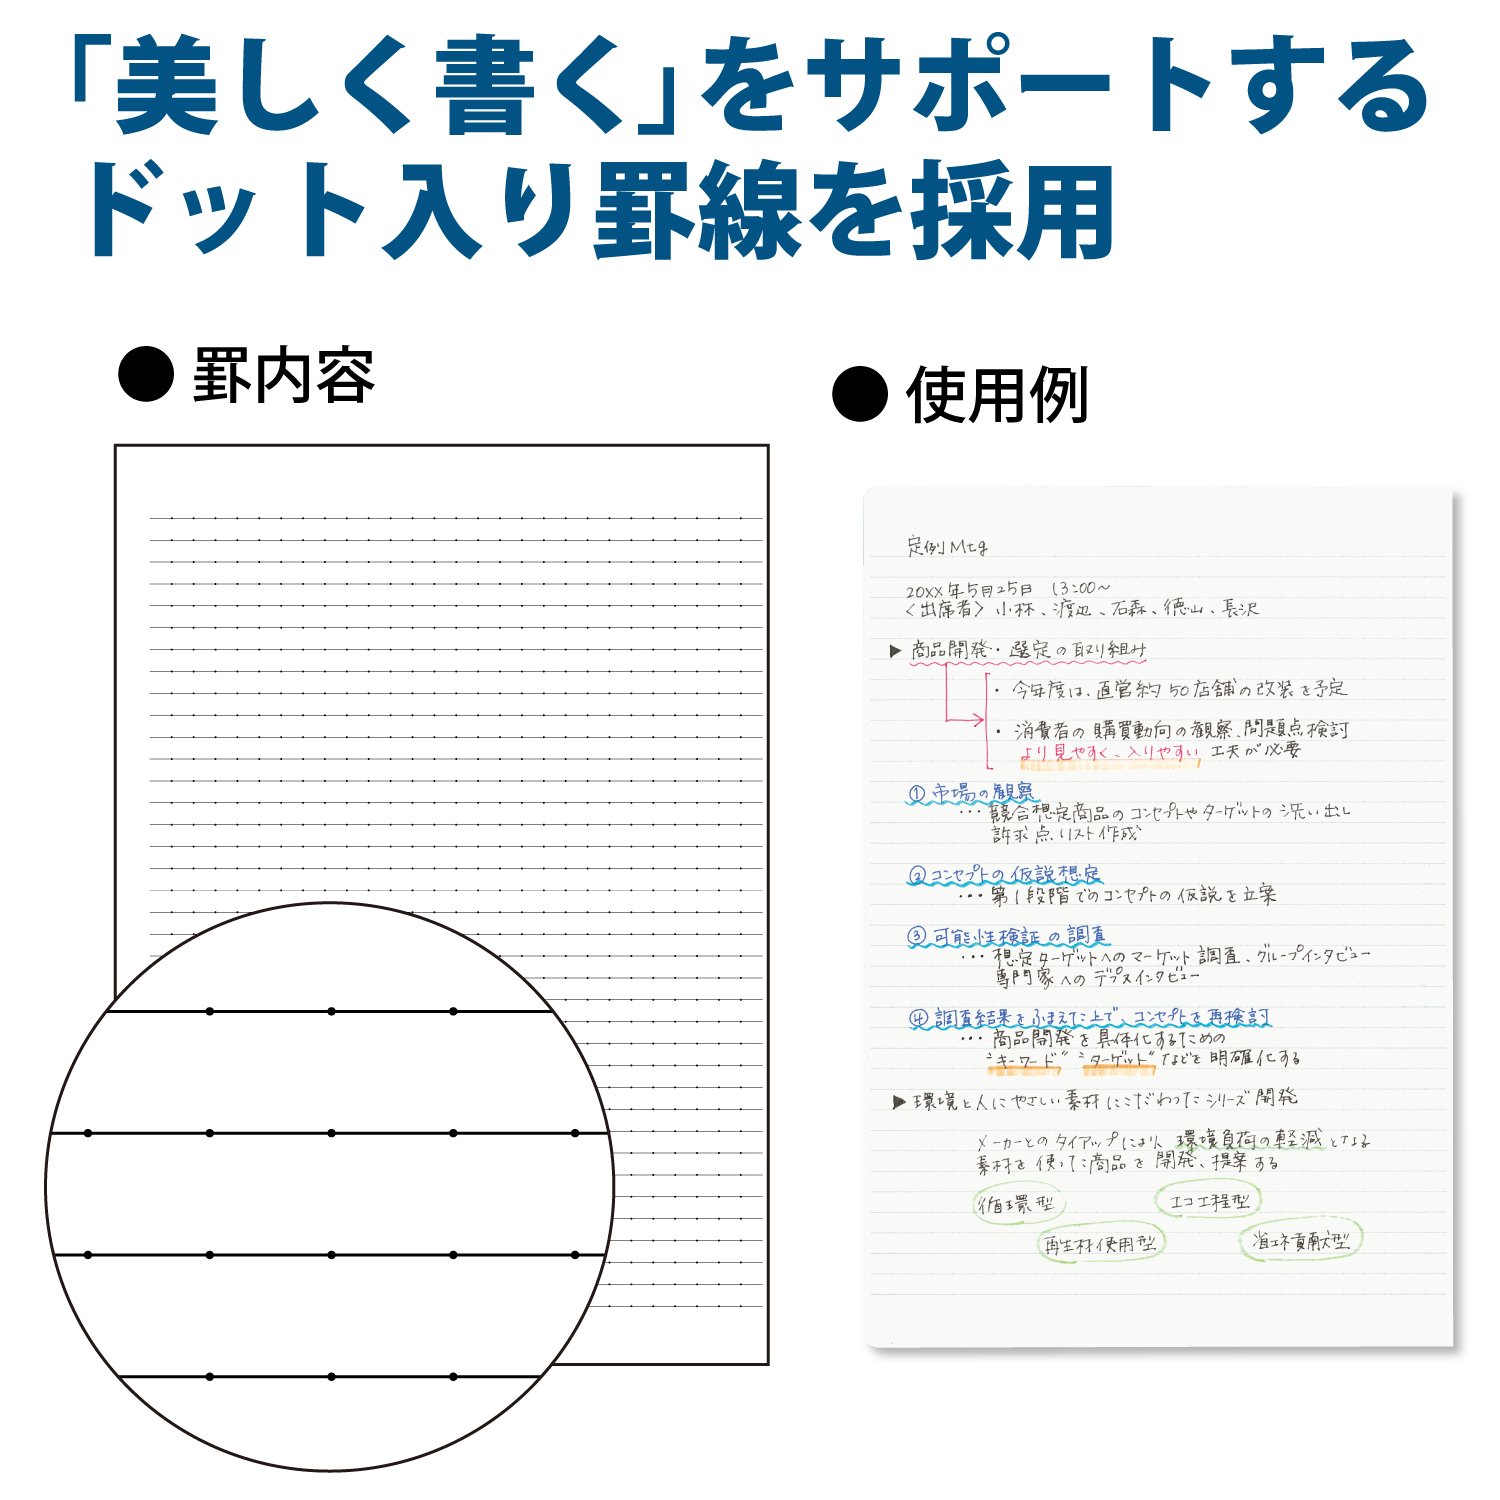 「美しく書く」をサポートする
ドット入り罫線を採用
● 罫内容
● 使用例
定例Mtg
20XX年5月25日 13:00~
<出席者> 小林、渡辺、石森、徳山、長沢
▶ 商品開発・選定の取り組み
・今年度は、直営約50店舗の改装を予定
・消費者の購買動向の観察、問題点検討
より見やすく、入りやすい 工夫が必要
① 市場の観察
… 競合想定商品のコンセプトやターゲットの洗い出し
訴求点リスト作成
② コンセプトの仮説想定
… 第1段階でのコンセプトの仮説を立案
③ 可能性検証の調査
… 想定ターゲットへのマーケット調査、グループインタビュー
専門家へのデプスインタビュー
④ 調査結果をふまえた上で、コンセプトを再検討
… 商品開発を具体化するための
"キーワード" "ターゲット"などを明確化する
▶ 環境と人にやさしい素材にこだわったシリーズ開発
メーカーとのタイアップにより、環境負荷の軽減となる
素材を使った商品を開発、提案する
循環型 エコ工程型
再生材使用型 省エネ貢献型